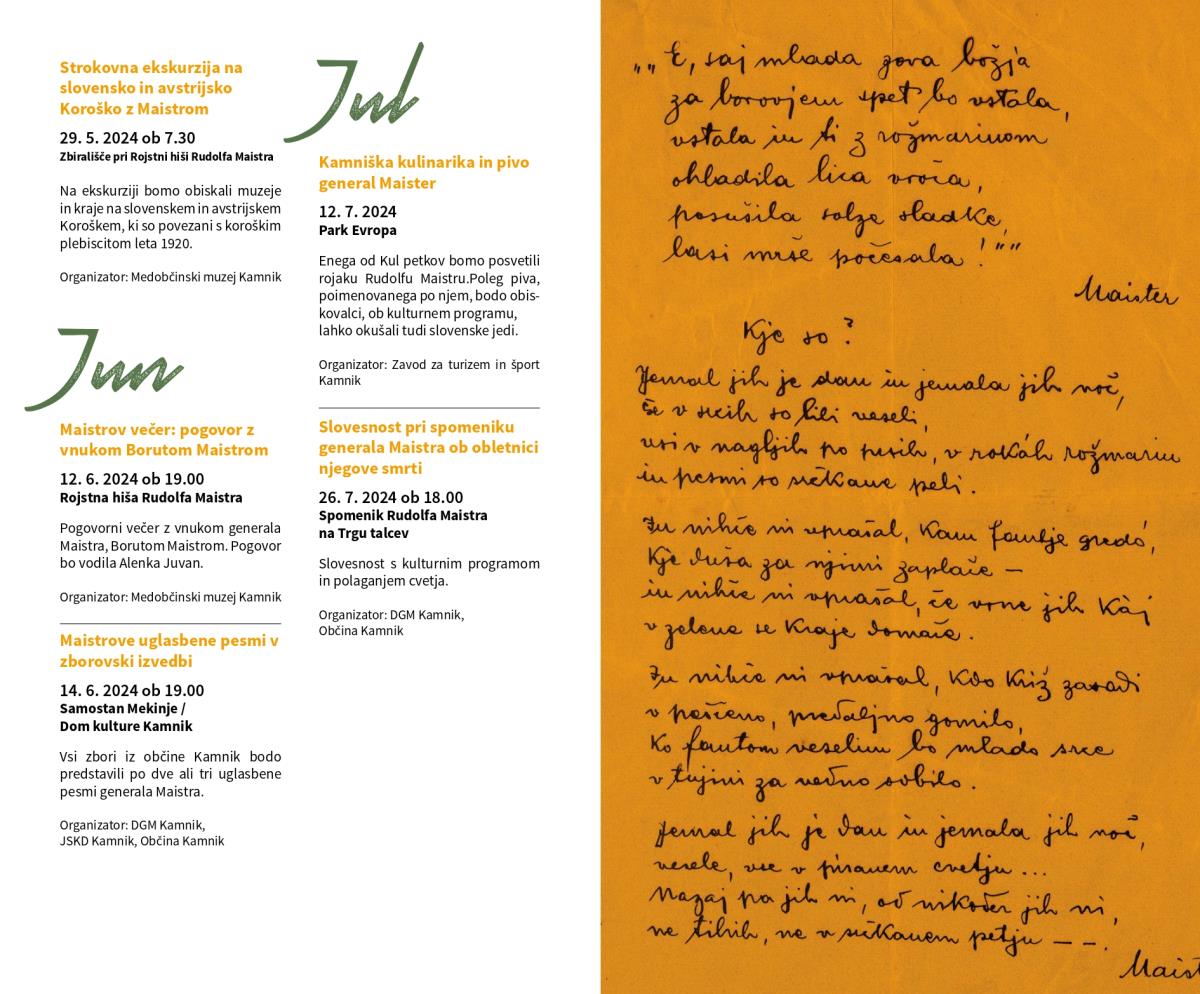 Strokovna ekskurzija na
slovensko in avstrijsko
Koroško z Maistrom
29. 5. 2024 ob 7.30
Zbirališče pri Rojstni hiši Rudolfa Maistra
Na ekskurziji bomo obiskali muzeje
in kraje na slovenskem in avstrijskem
Koroškem, ki so povezani s koroškim
plebiscitom leta 1920.
Organizator: Medobčinski muzej Kamnik
Jun
Maistrov večer: pogovor z
vnukom Borutom Maistrom
12. 6. 2024 ob 19.00
Rojstna hiša Rudolfa Maistra
Pogovorni večer z vnukom generala
Maistra, Borutom Maistrom. Pogovor
bo vodila Alenka Juvan.
Organizator: Medobčinski muzej Kamnik
Maistrove uglasbene pesmi v
zborovski izvedbi
14. 6. 2024 ob 19.00
Samostan Mekinje /
Dom kulture Kamnik
Vsi zbori iz občine Kamnik bodo
predstavili po dve ali tri uglasbene
pesmi generala Maistra.
Organizator: DGM Kamnik,
JSKD Kamnik, Občina Kamnik
Jul
Kamniška kulinarika in pivo
general Maister
12. 7. 2024
Park Evropa
Enega od Kul petkov bomo posvetili
rojaku Rudolfu Maistru.Poleg piva,
poimenovanega po njem, bodo obis-
kovalci, ob kulturnem programu,
lahko okušali tudi slovenske jedi.
Organizator: Zavod za turizem in šport
Kamnik
Slovesnost pri spomeniku
generala Maistra ob obletnici
njegove smrti
26. 7. 2024 ob 18.00
Spomenik Rudolfa Maistra
na Trgu talcev
Slovesnost s kulturnim programom
in polaganjem cvetja.
Organizator: DGM Kamnik,
Občina Kamnik
„„E, saj mlada zora božja
za borovjem spet bo vstala,
vstala in ti z rožmarinom
ohladila lica vroča,
posušila solze sladke,
lasi mrše počesala!““
Maister
Kje so?
Jemal jih je dan in jemala jih noč,
še v srcih so bili veseli,
vsi v nagljih po prsih, v rokáh rožmarin
in pesmi so sučkane peli.
In nihče ni vprašal, kam fantje gredó,
kje duša za njimi zaplače —
in nihče ni vprašal, če vrne jih kàj
v zelene se kraje domače.
In nihče ni vprašal, kdo križ zasadi
v peščeno, predaljno gomilo,
ko fantom veselim bo mlado srce
v tujini za večno sobilo.
Jemal jih je dan in jemala jih noč,
vesele, vse v pisanem cvetju ...
Nazaj pa jih ni, od nikoder jih ni,
ne tihih, ne v sučkanem petju — —.
Maist